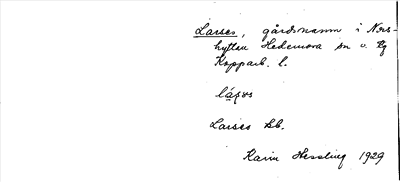 Larses, gårdsnamn i Nors-
hyttan Hedemora sn o. tg
Kopparb. l.
Larses bb.
Karin Hessling 1929